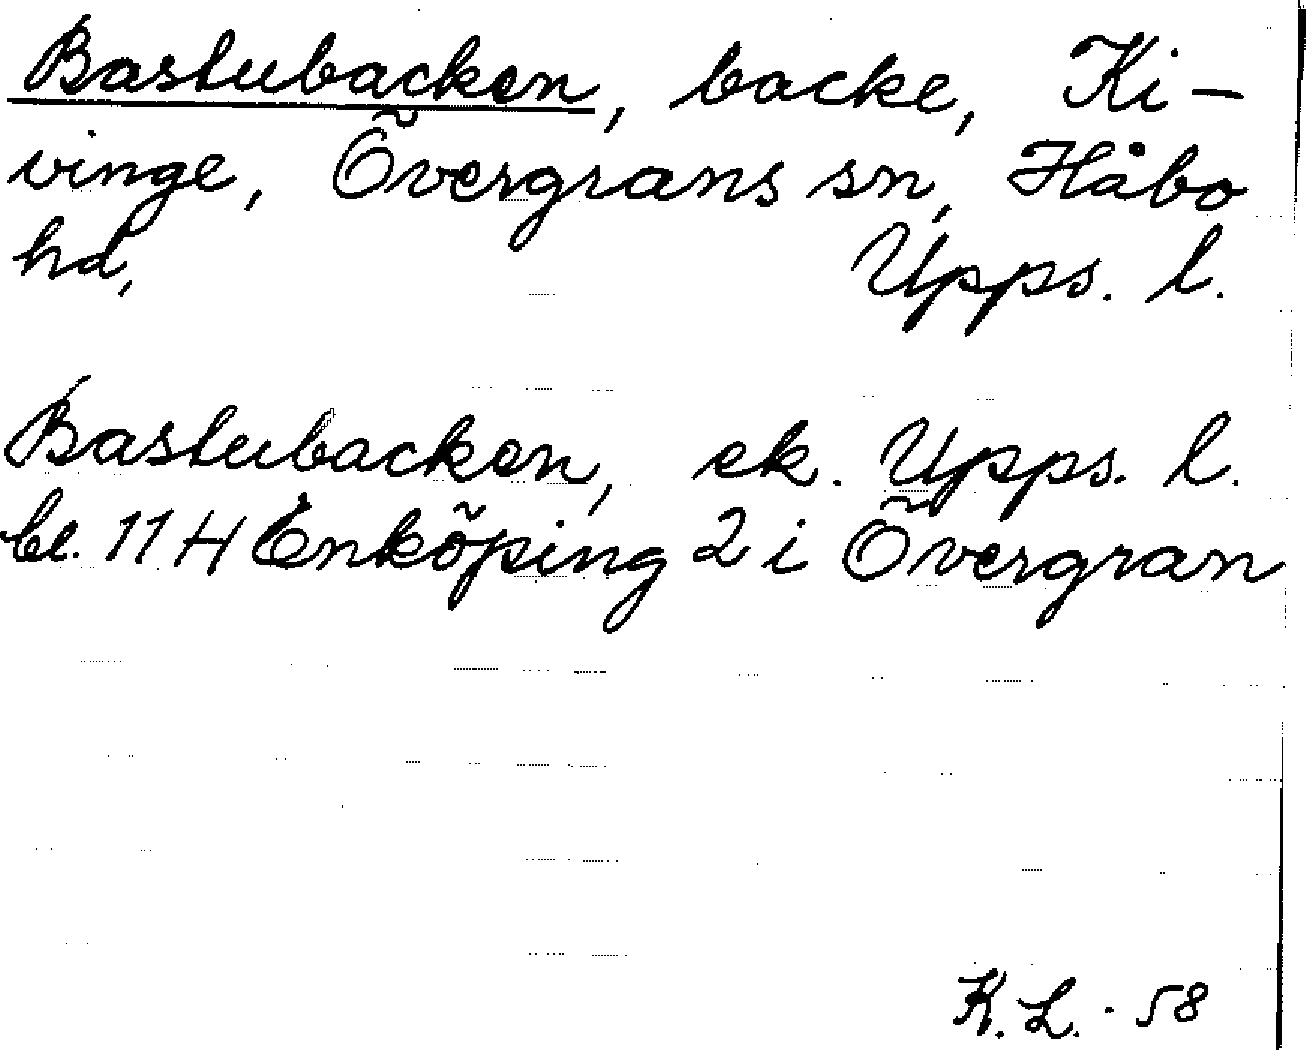 Bastubacken, backe, Ki-
vinge, Övergrans sn, Håbo
hd, Upps. l.
Bastubacken, ek. Upps. l.
bl. 11 H Enköping 2 i Övergran
K. L. - 58